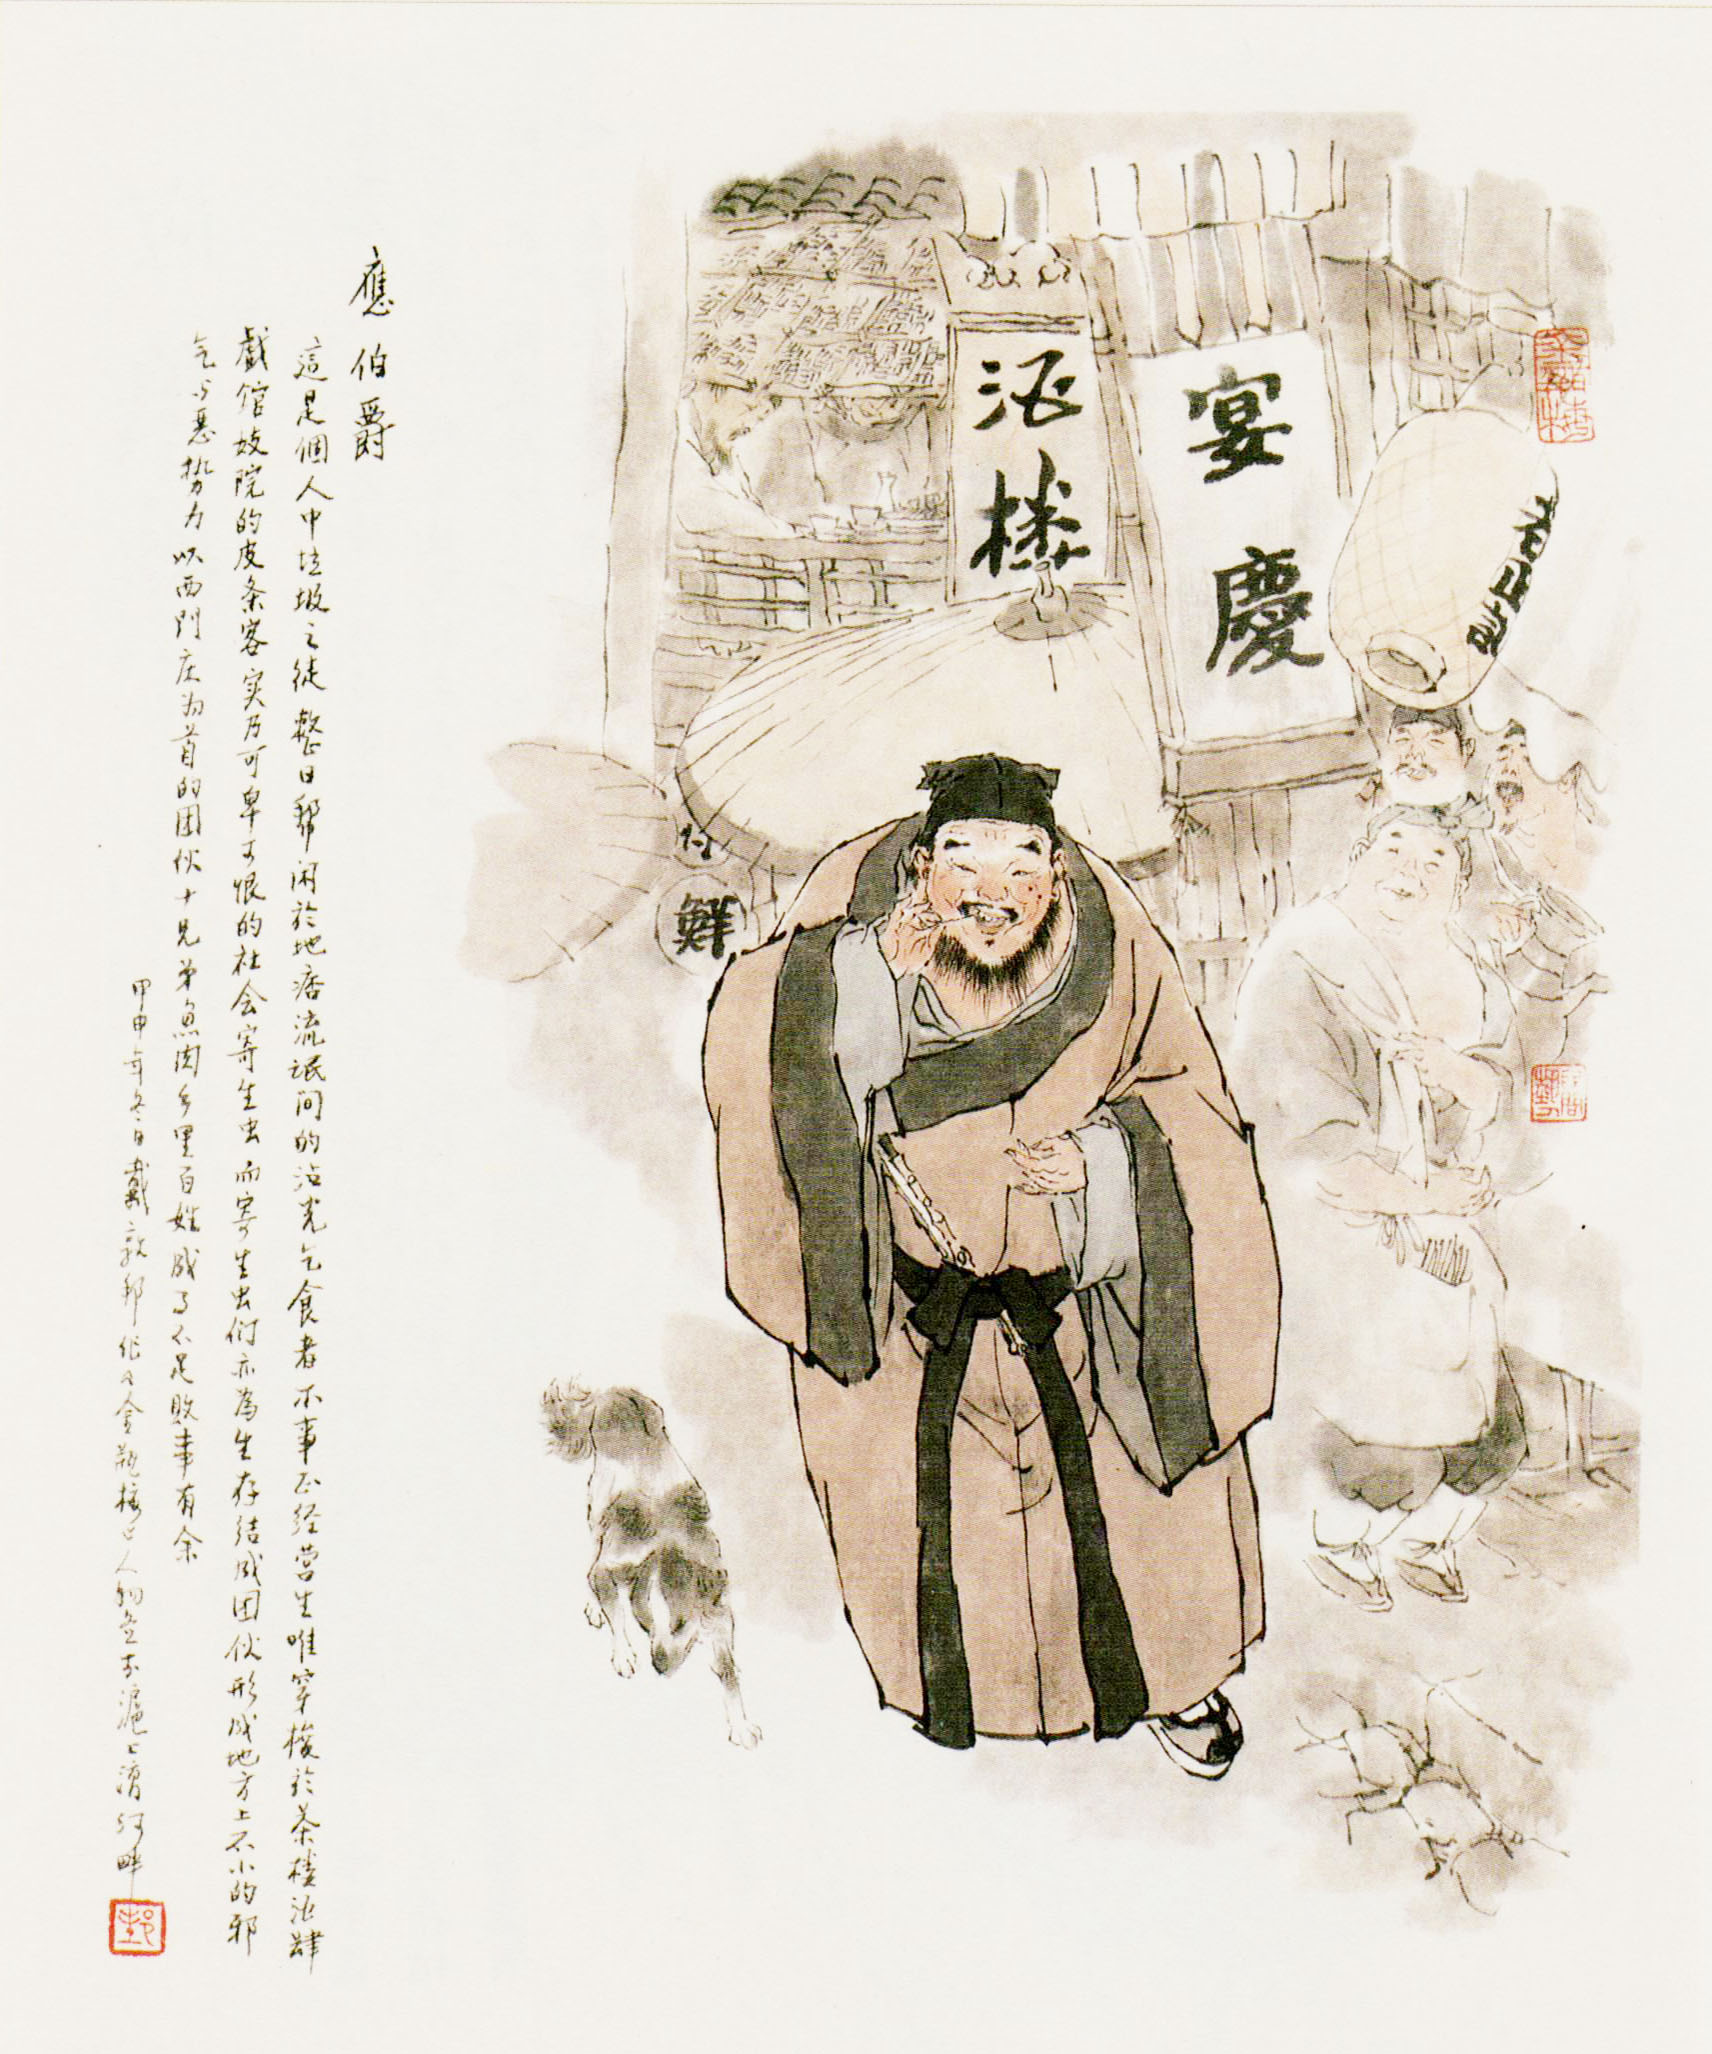 應伯爵
這是個人中垃圾之徒整日幫闲於地痞流氓间的沾光乞食者不事正经营生唯穿梭於茶楼酒肆
戲馆妓院的皮条客实乃可卑可恨的社会寄生虫而寄生虫们亦為生存结成团伙形成地方上不小的邪
气与恶势力以西門庆为首的团伙十兄弟魚肉乡里百姓成事不足败事有余
甲申年冬日戴敦邦作金瓶梅人物
酒楼
宴慶
鮮